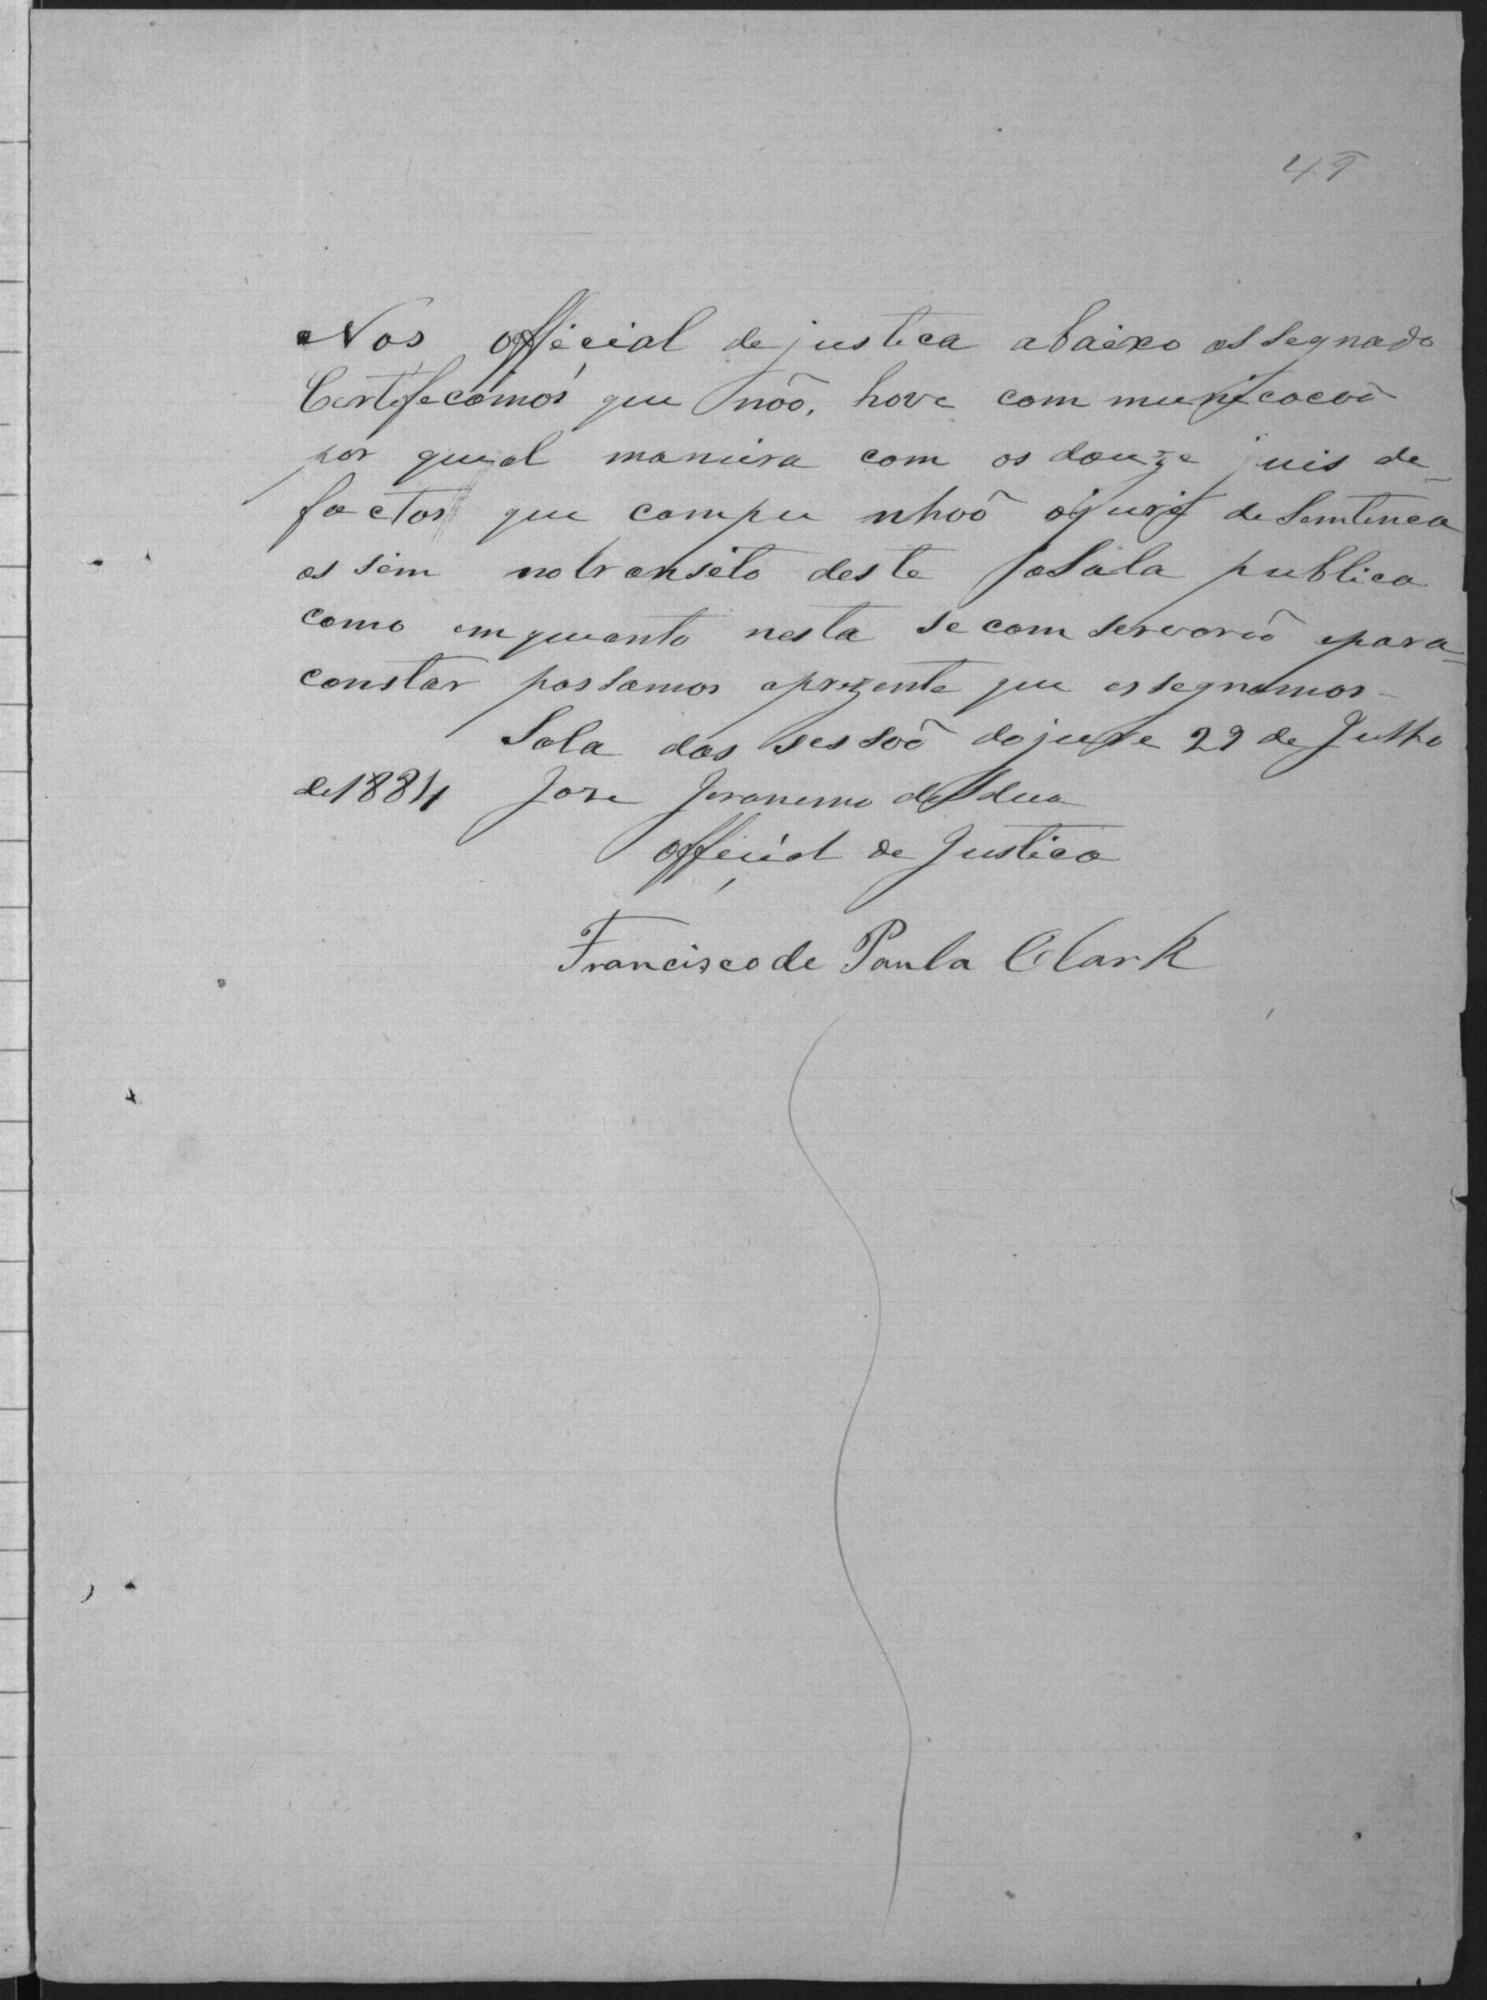 49
Nos official de justica abaixo assegnado
Certefecamos que não, hove communicacoã
por qual maneira com os douze juis de
factos que compu nhoõ ojury de Sentenca
as sim notransito deste paSala publica
como em quanto nesta se comservarão epara
constar passamos aprezente que assegnamos
Sala das sessoõ dojury 29 de Julho
de 1884 Jose Jeronemo de
official de Justica
Francisco de Paula Clark